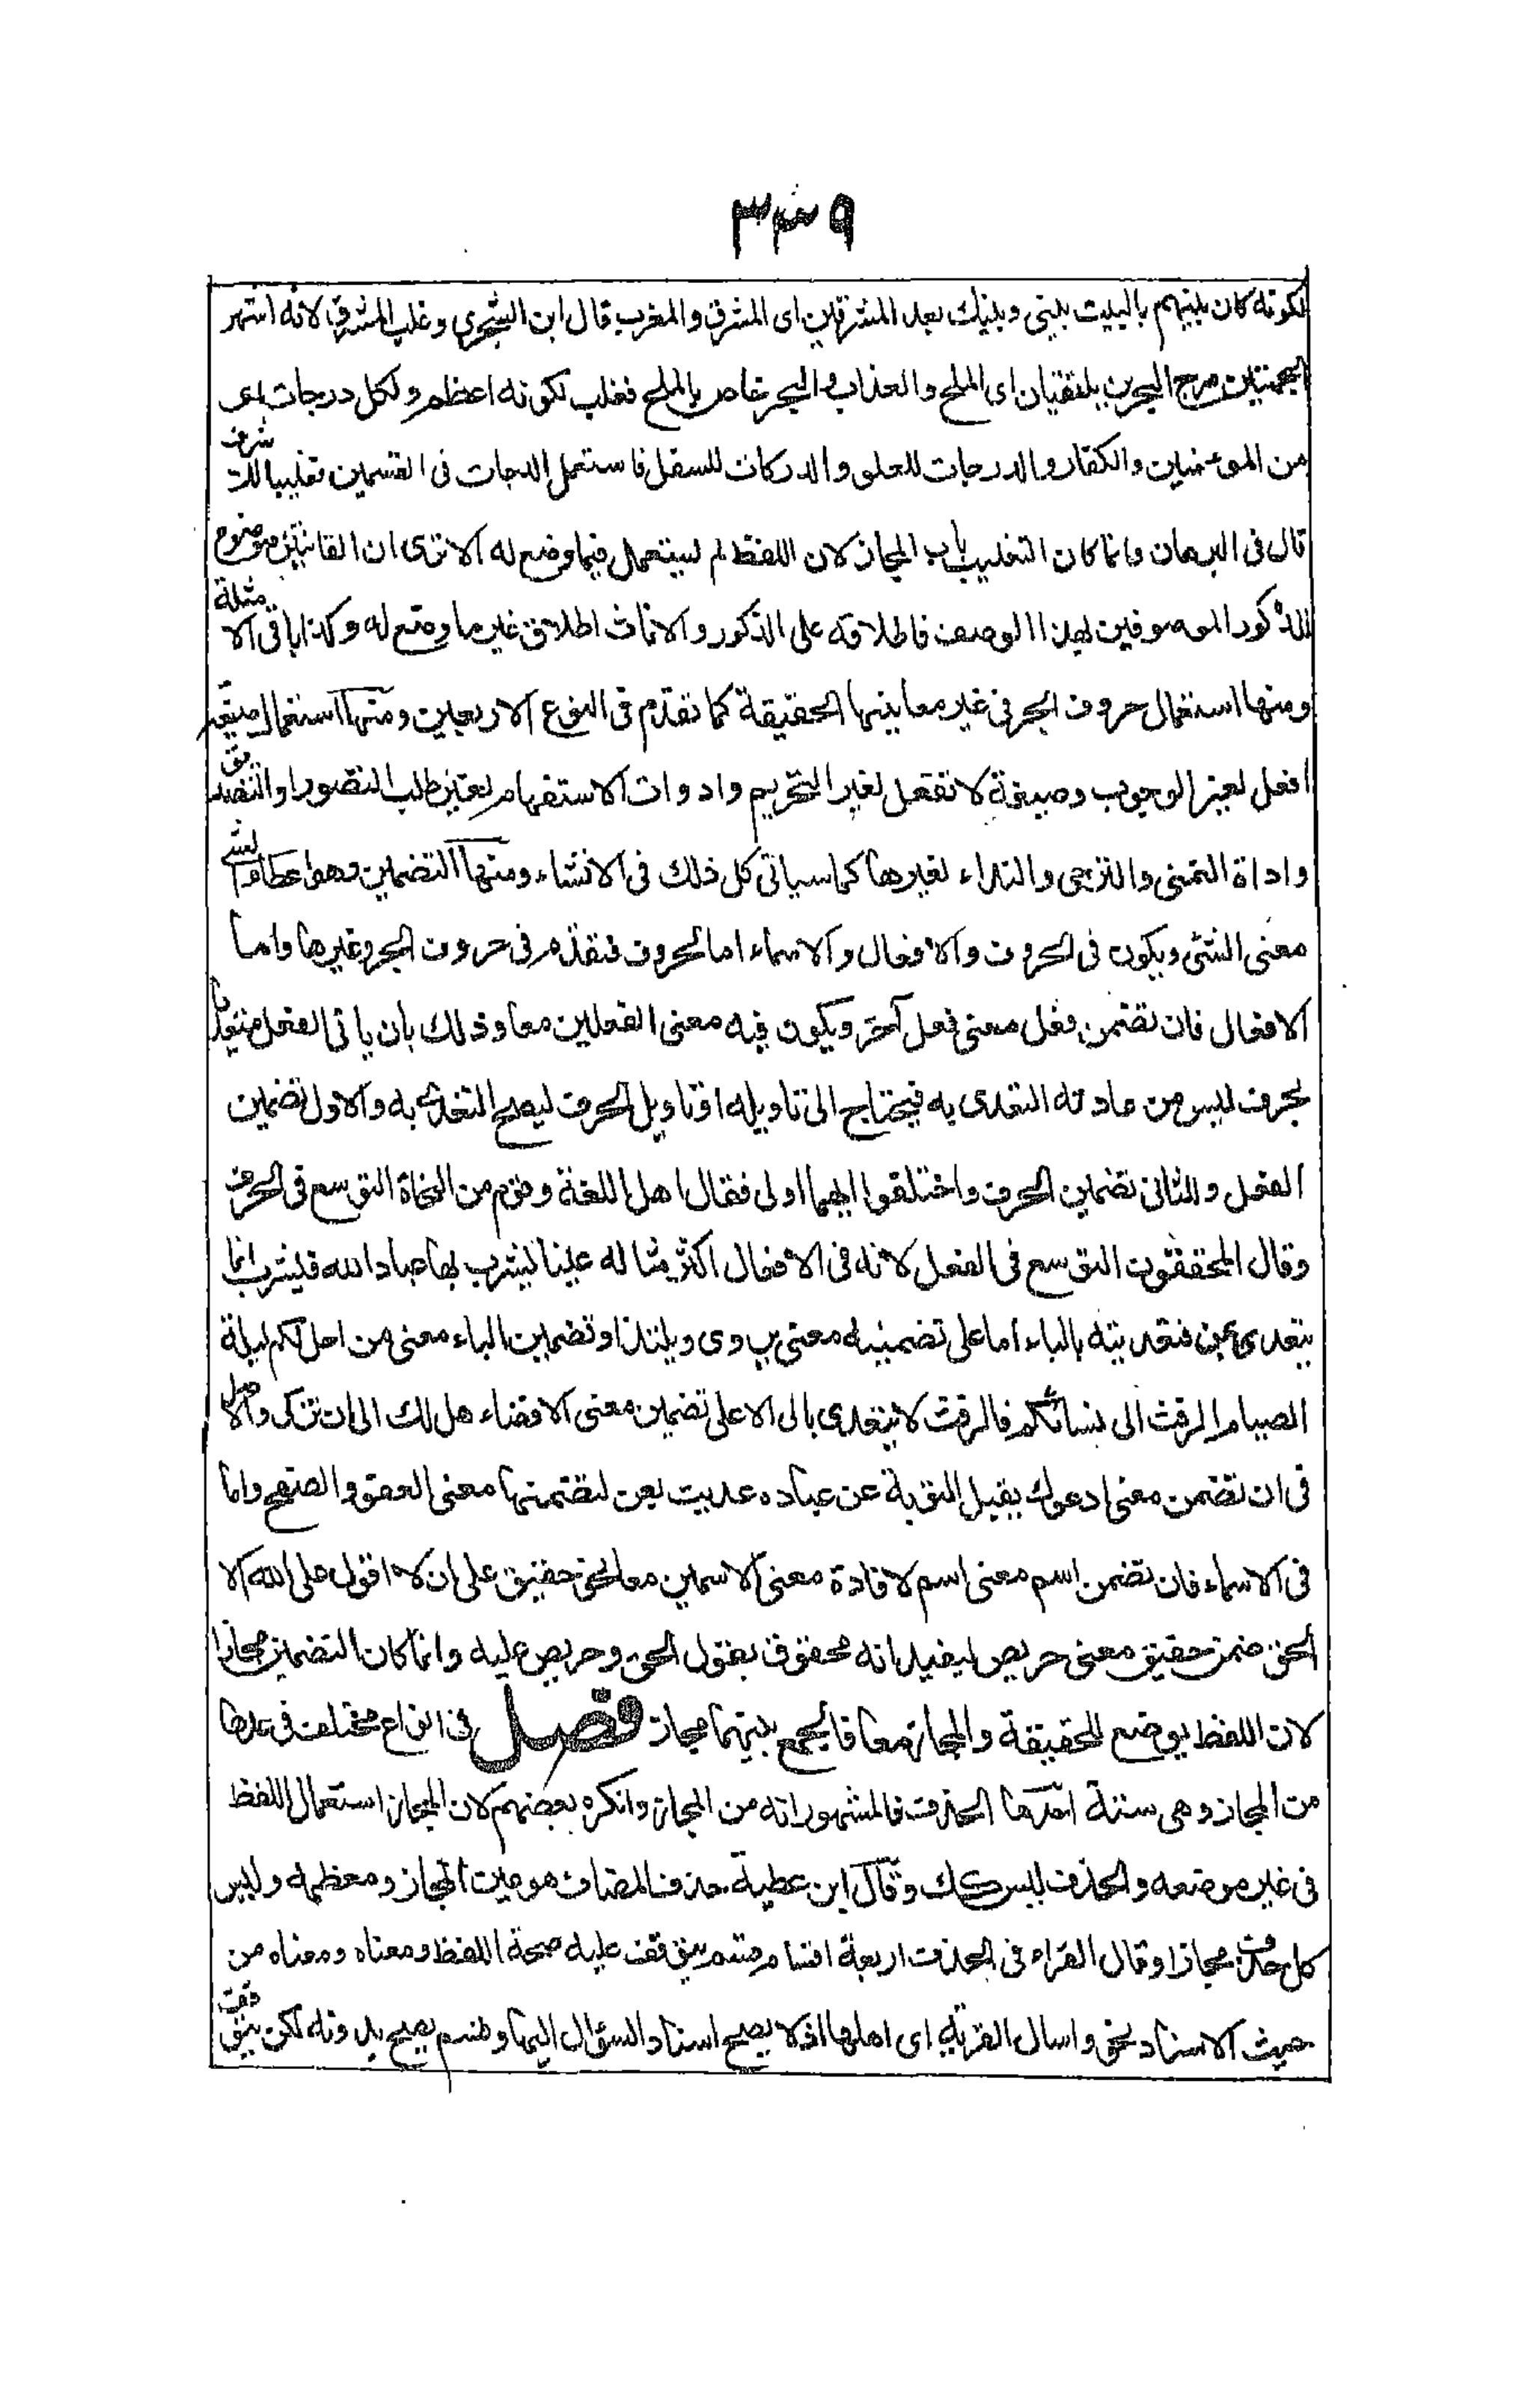 ٣٤٩
لكونه كان بينهم ياليت بيني وبينك بعد المشرقين اى المشرق والمغرب قال ابن الشجرى وغلب المشرق لانه اشهر
الجهتين مرج البحرين يلتقيان اى الملح والعذاب والبحر خاص بالملح فغلب لكونه اعظم ولكل درجات اى
من المومنين والكفار والدرجات للعلو والدركات للسفل فاستعمل الدرجات فى القسمين تغليبا للاشرف
قال فى البرهان وانما كان التغليب باب المجاز لان اللفظ لم يستعمل فيما وضع له الا ترى ان القانتين موضوع
للذكور الموصوفين بهذا الوصف فاطلاقه على الذكور والاناث اطلاق غير ما وضع له وكذا باقى الامثلة
ومنها استعمال حروف الجر فى غير معانيها الحقيقة كما تقدم فى النوع الاربعين ومنها استعمال صيغة
افعل لغير الوجوب وصيغة لا تفعل لغير التحريم وادوات الاستفهام لغير طلب التصور او التصديق
واداة التمنى والترجى والنداء لغيرها كما سياتى كل ذلك فى الانشاء ومنها التضمين وهو اعطاء الشئ
معنى الشئ ويكون فى الحروف والافعال والاسماء اما الحروف فتقدم فى حروف الجر وغيرها واما
الافعال فان تضمن فعل معنى فعل آخر ويكون فيه معنى الفعلين معا وذلك بان ياتى الفعل متعديا
بحرف ليس من عادته التعدى به فيحتاج الى تاويله او تاويل الحرف ليصح التعدى به والاول تضمين
الفعل والثانى تضمين الحرف واختلفوا ايهما اولى فقال اهل اللغة وقوم من النحاة التوسع فى الحرف
وقال المحققون التوسع فى الفعل لانه فى الافعال اكثر مثاله عينا يشرب بها عباد الله فيشرب انما
يتعدى بمن فتعديته بالباء اما على تضمينه معنى يروى ويلتذ او تضمين الباء معنى من احل لكم ليلة
الصيام الرفث الى نسائكم فالرفث لا يتعدى بالى الا على تضمين معنى الافضاء هل لك الى ان تزكى والاصل
فى ان تضمن معنى ادعوك يقبل التوبة عن عباده عديت بعن لتضمنها معنى العفو والصفح واما
فى الاسماء فان تضمن اسم معنى اسم لافادة معنى الاسمين معا نحو حقيق على ان لا اقول على الله الا
الحق ضمن حقيق معنى حريص ليفيد انه محقوق بقول الحق وحريص عليه وانما كان التضمين مجازا
لان اللفظ يوضع للحقيقة والمجاز معا فالجمع بينهما مجاز فصل فى انواع مختلف فى عدها
من المجاز وهى ستة احدها الحذف فالمشهور انه من المجاز وانكره بعضهم لان المجاز استعمال اللفظ
فى غير موضعه والحذف ليس كك وقال ابن عطية حذف المضاف هو عين المجاز ومعظمه وليس
كل حذف مجازا وقال القراء فى الحذف اربعة اقسام قسم يتوقف عليه صحة اللفظ ومعناه ومعناه من
حيث الاسناد نحو واسال القرية اى اهلها اذ لا يصح اسناد السؤال اليها وقسم يصح بدونه لكن يتوقف